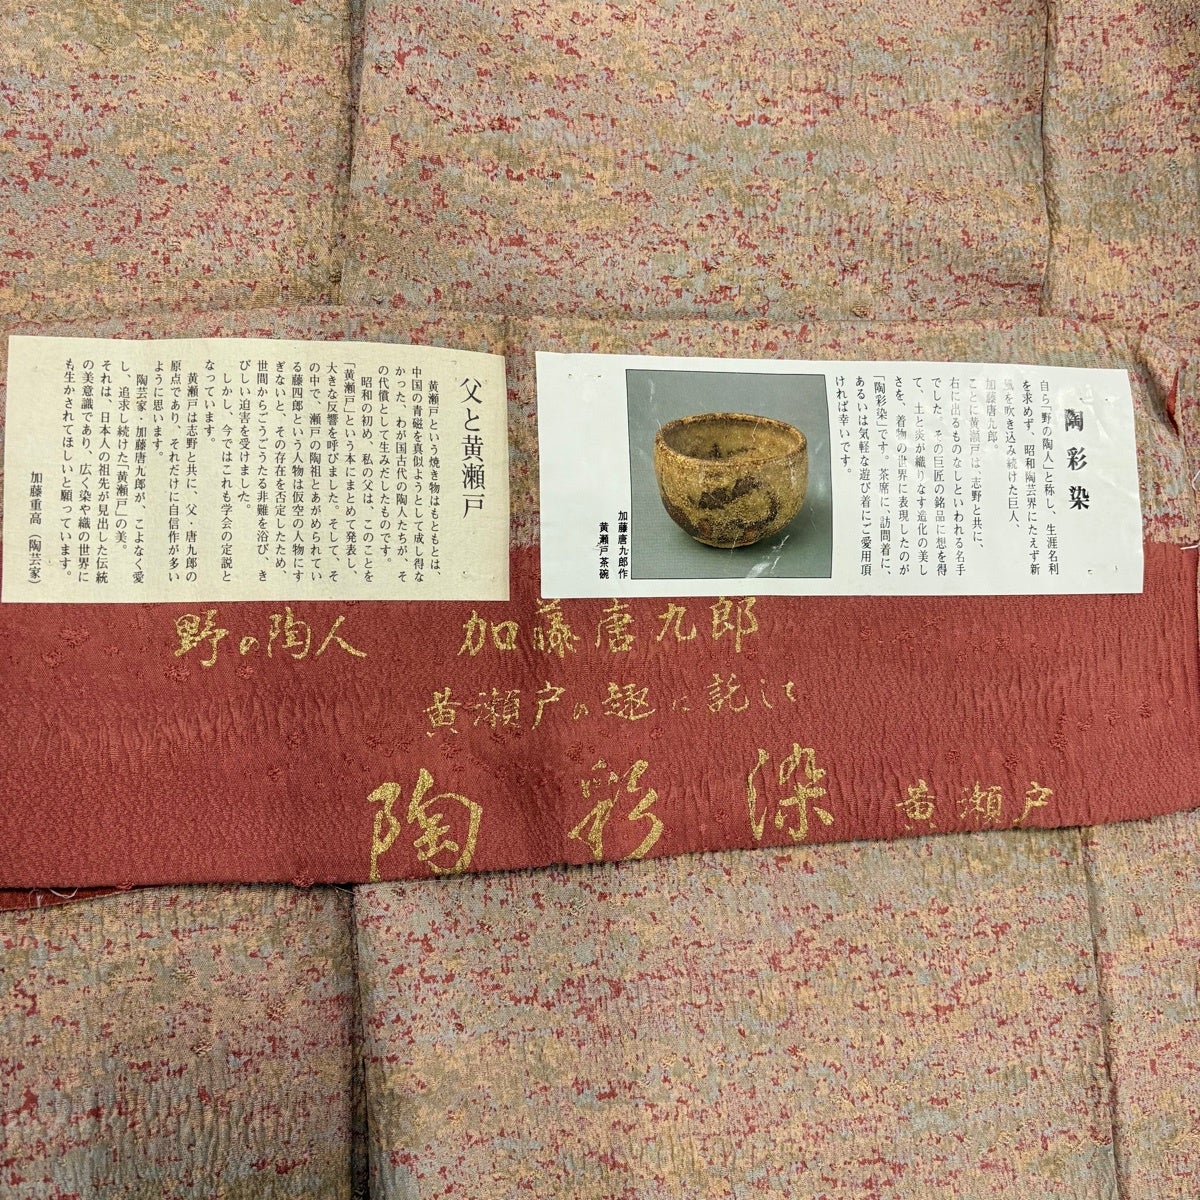 陶彩染
自ら「野の陶人」と称し、生涯名利
を求めず、昭和陶芸界にたえず新
風を吹き込み続けた巨人、
加藤唐九郎。
ことに黄瀬戸は、志野と共に、
右に出るものなしといわれる名手
でした。その巨匠の銘品に想を得
て、土と炎が織りなす造化の美し
さを、着物の世界に表現したのが
「陶彩染」です。茶席に、訪問着に、
あるいは気軽な遊び着にご愛用頂
ければ幸いです。
加藤唐九郎作
黄瀬戸茶碗
父と黄瀬戸
黄瀬戸という焼き物はもともとは、
中国の青磁を真似ようとして成し得な
かった、わが国古代の陶人たちが、そ
の代償として生みだしたものです。
昭和の初め、私の父は、このことを
「黄瀬戸」という本にまとめて発表し、
大きな反響を呼びました。そして、そ
の中で、瀬戸の陶祖とあがめられてい
る藤四郎という人物は仮空の人物にす
ぎないと、その存在を否定したため、
世間からごうごうたる非難を浴び、き
びしい迫害を受けました。
しかし、今ではこれも学会の定説と
なっています。
黄瀬戸は志野と共に、父・唐九郎の
原点であり、それだけに自信作が多い
ように思います。
陶芸家・加藤唐九郎が、こよなく愛
し、追求し続けた「黄瀬戸」の美。
それは、日本人の祖先が見出した伝統
の美意識であり、広く染や織の世界に
も生かされてほしいと願っています。
加藤重高(陶芸家)
野の陶人 加藤唐九郎
黄瀬戸の趣に託して
陶彩染 黄瀬戸